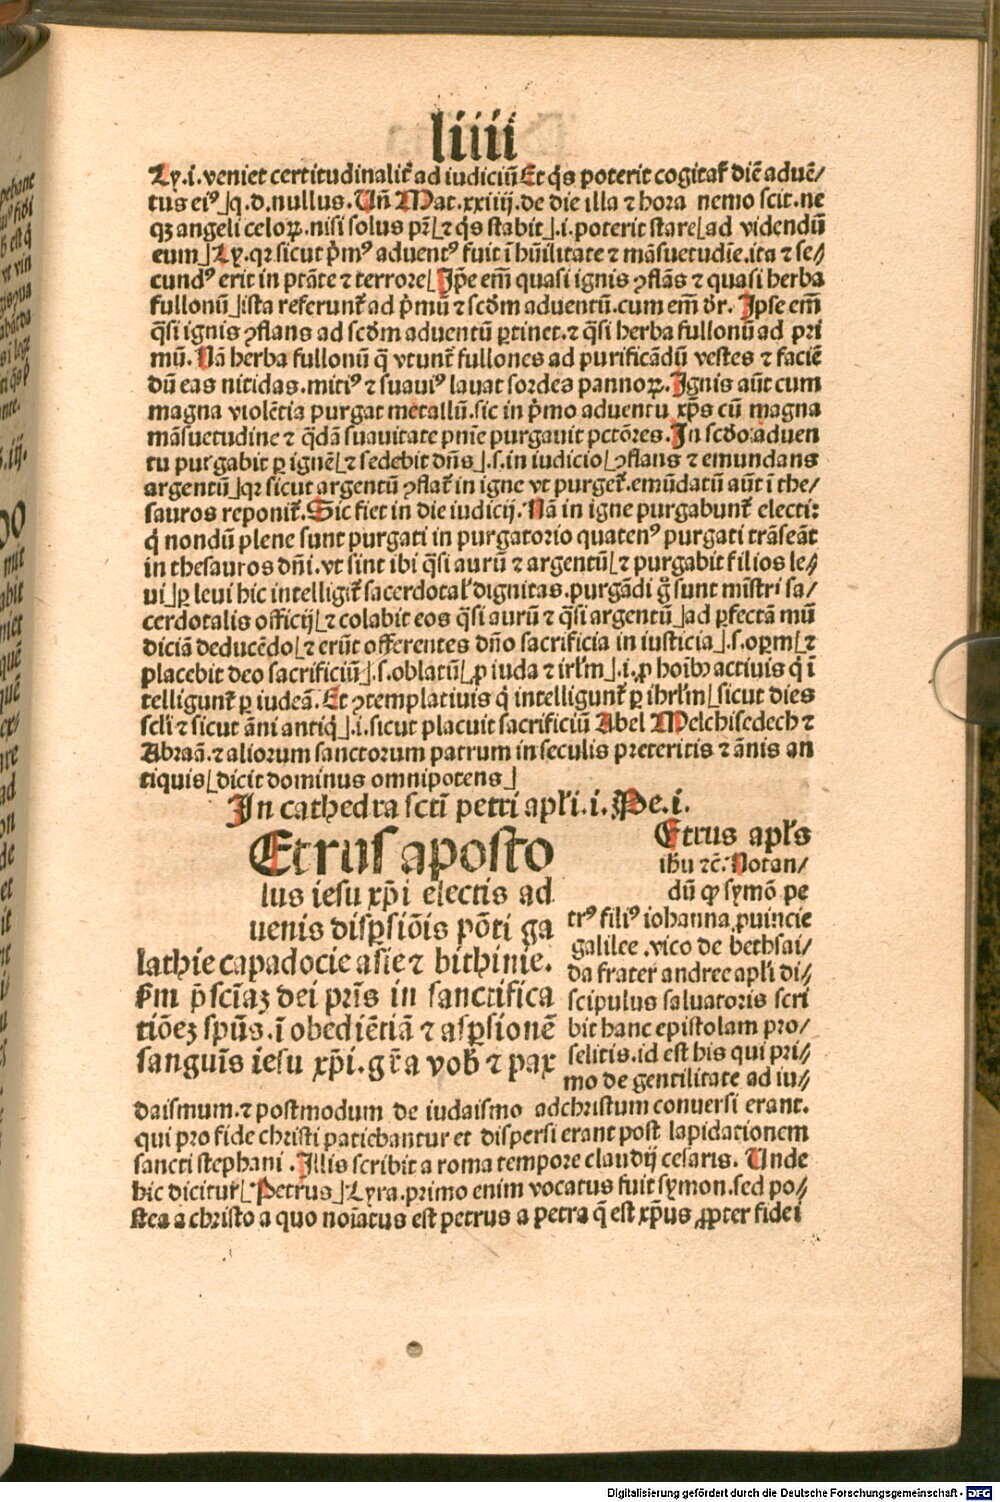 liiii
Ly.i.veniet certitudinalit̉ ad iudiciū Et q̇s poterit cogitar̉ diē aduē/
tus eiꝰ ⌋q.d.nullus. Uñ Mat.xxiiij.de die illa ⁊ hora nemo scit.ne
qꝫ angeli celoꝝ.nisi solus pr̄⌊⁊ q̇s stabit⌋.i.poterit stare⌊ad videndū
eum⌋Ly.qꝛ sicut p̓mꝰ aduentꝰ fuit ī hūilitate ⁊ māsuetudīe.ita ⁊ se⸗
cundꝰ erit in ptāte ⁊ terrore⌊Ip̄e em̄ quasi ignis ꝯflās ⁊ quasi herba
fullonū⌋ista referunt̉ ad p̓mū ⁊ scd̄m aduentū.cum em̄ dr̄. Ipse em̄
q̄si ignis ꝯflans ad scd̄m aduentū ꝑtinet.⁊ q̄si herba fullonū ad pri
mū. Nā herba fullonū q̄ vtunt̉ fullones ad purificādū vestes ⁊ faciē
dū eas nitidas.mitiꝰ ⁊ suauiꝰ lauat sordes pannoꝝ. Ignis aūt cum
magna violētia purgat metallū.sic in p̓mo aduentu xp̄s cū magna
māsuetudine ⁊ q̄dā suauitate pnīe purgauit pctōres. In scd̄o aduen
tu purgabit ꝑ ignē⌊⁊ sedebit dn̄s⌋.s.in iudicio⌊ꝯflans ⁊ emundans
argentū⌋qꝛ sicut argentū ꝯflat̉ in igne vt purget̉.emūdatū aūt ī the/
sauros reponit̉. Sic fiet in die iudicij. Nā in igne purgabunt̉ electi:
q̇ nondū plene sunt purgati in purgatorio quatenꝰ purgati trāseāt
in thesauros dn̄i.vt sint ibi q̄si aurū ⁊ argentū⌊⁊ purgabit filios le⸗
ui⌋ꝑ leui hic intelligit̉ sacerdotal̓ dignitas.purgādi g̊ sunt mīstri sa/
cerdotalis officij⌊⁊ colabit eos q̄si aurū ⁊ q̄si argentū⌋ad ꝑfectā mū
diciā deducēdo⌊⁊ erūt offerentes dn̄o sacrificia in iusticia⌋.s.oꝑm⌊⁊
placebit deo sacrificiū⌋.s.oblatū⌊ꝓ iuda ⁊ irl̄m⌋.i.ꝓ hoībꝰ actiuis q̇ ī
telligunt̉ ꝑ iudeā. Et ꝯtemplatiuis q̇ intelligunt̉ ꝑ ihrl̄m⌊sicut dies
scl̄i ⁊ sicut āni antiq̇⌋.i.sicut placuit sacrificiū Abel Melchisedech ⁊
Abraā.⁊ aliorum sanctorum patrum in seculis preteritis ⁊ ānis an
tiquis⌊dicit dominus omnipotens⌋
In cathedra sctī petri apl̄i.i.Pe.i.
Etrus aposto
lus iesu xp̄i electis ad
uenis disꝑsiōis pōti ga
lathie capadocie asie ⁊ bithinie.
ẜm p̄sciaꝫ dei pr̄is in sanctifica
tiōeꝫ spūs.ī obediētiā ⁊ asꝑsionē
sanguīs iesu xp̄i.gr̄a vob̉ ⁊ pax
Etrus apl̄s
ihu ⁊c̄. Notan/
dū ꝙ symō pe
trꝰ filiꝰ iohanna ꝓuincie
galilee .vico de bethsai/
da frater andree apl̄i di⸗
scipulus saluatoris scri
bit hanc epistolam pro/
selitis.id est his qui pri⸗
mo de gentilitate ad iu⸗
daismum.⁊ postmodum de iudaismo ad christum conuersi erant.
qui pro fide christi patiebantur et dispersi erant post lapidationem
sancti stephani . Illis scribit a roma tempore claudij cesaris. Unde
hic dicitur̉⌊Petrus⌋Lyra.primo enim vocatus fuit symon.sed po⸗
stea a christo a quo noīatus est petrus a petra q̄ est xp̄us ꝓpter fidei
Digitalisierung gefördert durch die Deutsche Forschungsgemeinschaft - DFG